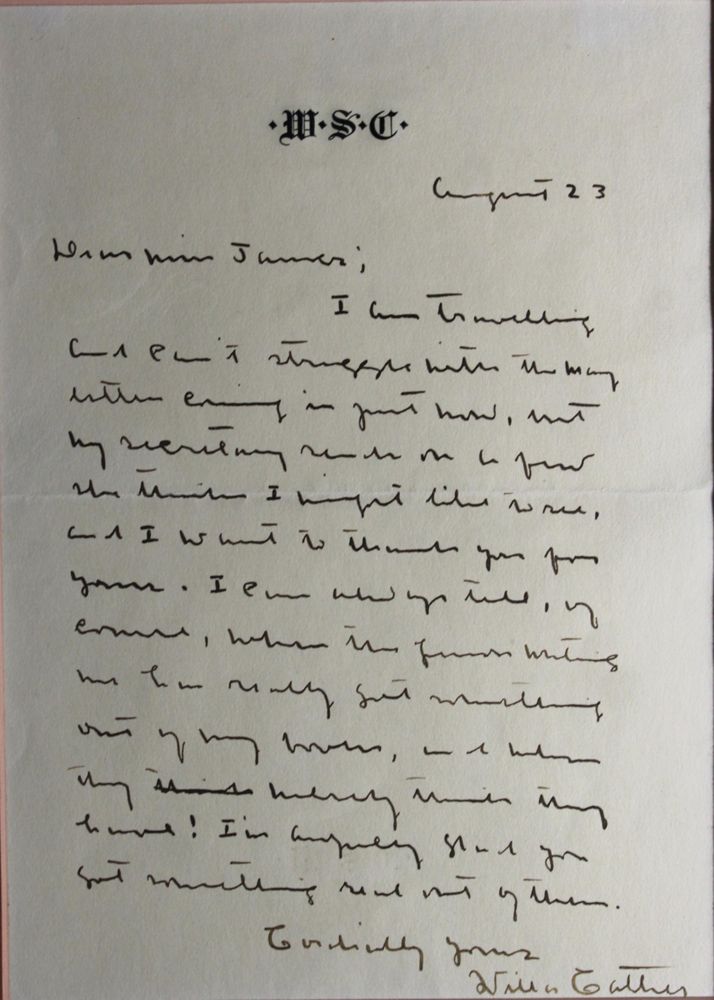 ·W·S·C·
August 23
Dear Miss James;
I am travelling
and can't struggle with the many
letters coming in just now, but
my secretary sends on a few
she thinks I might like to see,
and I want to thank you for
yours. I can always tell, of
course, when the person writing
me has really got something
out of my books, and when
they think merely think they
have! I'm awfully glad you
got something real out of them.
Cordially yours
Willa Cather